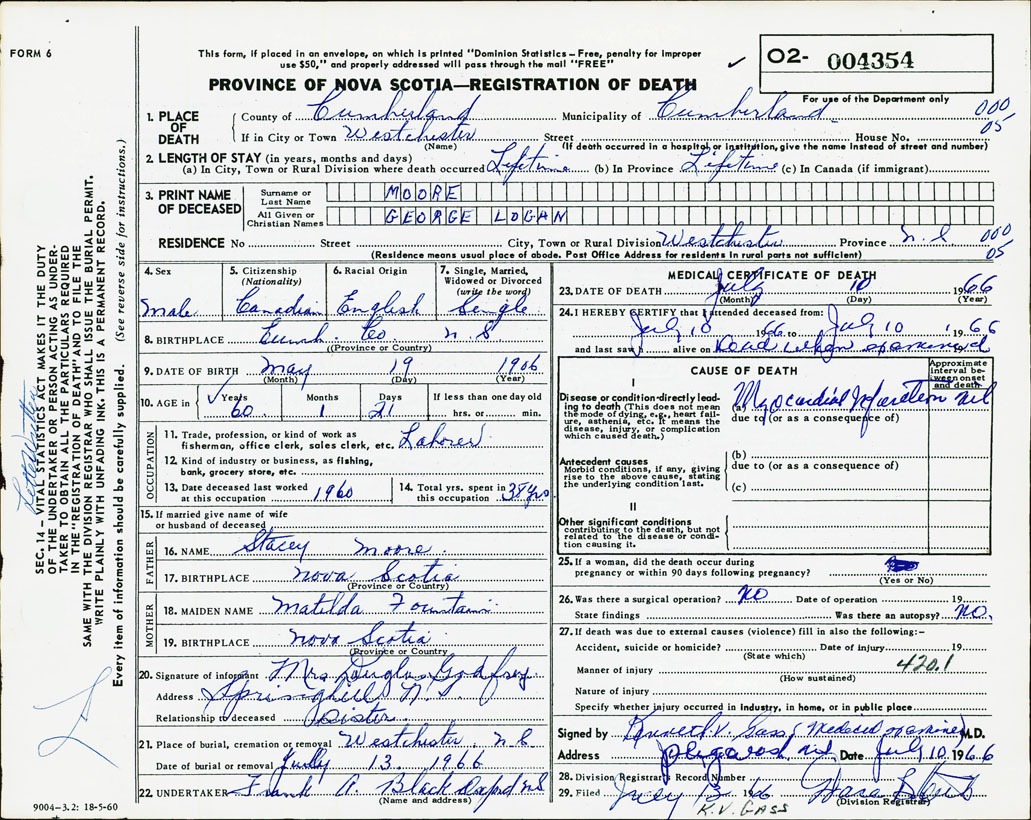 FORM 6
This form, if placed in an envelope, on which is printed "Dominion Statistics – Free, penalty for improper
use $50," and properly addressed will pass through the mail "FREE"
O2- 004354
PROVINCE OF NOVA SCOTIA—REGISTRATION OF DEATH
For use of the Department only
1. PLACE OF DEATH
County of Cumberland Municipality of Cumberland 000
If in City or Town Westchester Street House No. 05
(Name) (If death occurred in a hospital or institution, give the name instead of street and number)
2. LENGTH OF STAY (in years, months and days)
(a) In City, Town or Rural Division where death occurred Lifetime (b) In Province Lifetime (c) In Canada (if immigrant)
3. PRINT NAME OF DECEASED
Surname or Last Name MOORE
All Given or Christian Names GEORGE LOGAN
RESIDENCE No Street City, Town or Rural Division Westchester Province N.S 000
(Residence means usual place of abode. Post Office Address for residents in rural parts not sufficient) 05
4. Sex Male
5. Citizenship (Nationality) Canadian
6. Racial Origin English
7. Single, Married, Widowed or Divorced (write the word) Single
8. BIRTHPLACE Cumb. Co N.S
(Province or Country)
9. DATE OF BIRTH May 19 1906
(Month) (Day) (Year)
10. AGE in Years 60 Months 1 Days 21 If less than one day old hrs. or min.
OCCUPATION
11. Trade, profession, or kind of work as fishermen, office clerk, sales clerk, etc. Laborer
12. Kind of industry or business, as fishing, bank, grocery store, etc.
13. Date deceased last worked at this occupation 1960
14. Total yrs. spent in this occupation 38 yrs
15. If married give name of wife or husband of deceased
FATHER
16. NAME Stacey Moore
17. BIRTHPLACE Nova Scotia
(Province or Country)
MOTHER
18. MAIDEN NAME Matilda Fountain
19. BIRTHPLACE Nova Scotia
(Province or Country)
20. Signature of informant Mrs. Douglas Godfrey
Address Springhill N.S
Relationship to deceased Sister
21. Place of burial, cremation or removal Westchester, N.S
Date of burial or removal July 13 1966
22. UNDERTAKER Frank A. Black Oxford N.S
(Name and address)
9004–3.2: 18-5-60
MEDICAL CERTIFICATE OF DEATH
23. DATE OF DEATH July 10 1966
(Month) (Day) (Year)
24. I HEREBY CERTIFY that I attended deceased from:
July 10 1966 to July 10 1966
and last saw h alive on Dead when examined 19
CAUSE OF DEATH
Approximate interval between onset and death
I
Disease or condition directly leading to death (This does not mean the mode of dying, e.g., heart failure, asthenia, etc. It means the disease, injury, or complication which caused death.)
(a) Myocardial Infarction nil
due to (or as a consequence of)
Antecedent causes
Morbid conditions, if any, giving rise to the above cause, stating the underlying condition last.
(b)
due to (or as a consequence of)
(c)
II
Other significant conditions
contributing to the death, but not related to the disease or condition causing it.
25. If a woman, did the death occur during pregnancy or within 90 days following pregnancy?
(Yes or No)
26. Was there a surgical operation? NO Date of operation 19
State findings Was there an autopsy? NO.
27. If death was due to external causes (violence) fill in also the following:–
Accident, suicide or homicide? Date of injury 19
(State which)
Manner of injury 420.1
(How sustained)
Nature of injury
Specify whether injury occurred in industry, in home, or in public place
Signed by Kenneth V. Gass, Medical examiner M.D.
Address Pugwash N.S. Date July 10 1966
28. Division Registrar's Record Number
29. Filed July 13 1966
(Division Registrar)
K.V. GASS
SEC. 14 – VITAL STATISTICS ACT MAKES IT THE DUTY
OF THE UNDERTAKER OR PERSON ACTING AS UNDER-
TAKER TO OBTAIN ALL THE PARTICULARS REQUIRED
IN THE "REGISTRATION OF DEATH" AND TO FILE THE
SAME WITH THE DIVISION REGISTRAR WHO SHALL ISSUE THE BURIAL PERMIT.
WRITE PLAINLY WITH UNFADING INK. THIS IS A PERMANENT RECORD.
Every item of information should be carefully supplied. (See reverse side for instructions.)